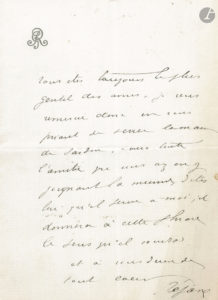 Vous êtes toujours le plus
gentil des amis, je vous
remercie donc en vous
priant de serrer la main
de Sardou, avec toute
l'amitié que vous
joignant la mienne, dites
lui qu'il serve à moi, je
donnerai à cette phrase
le sens qu'il voudra
et à vous de
tout cœur
Réjane